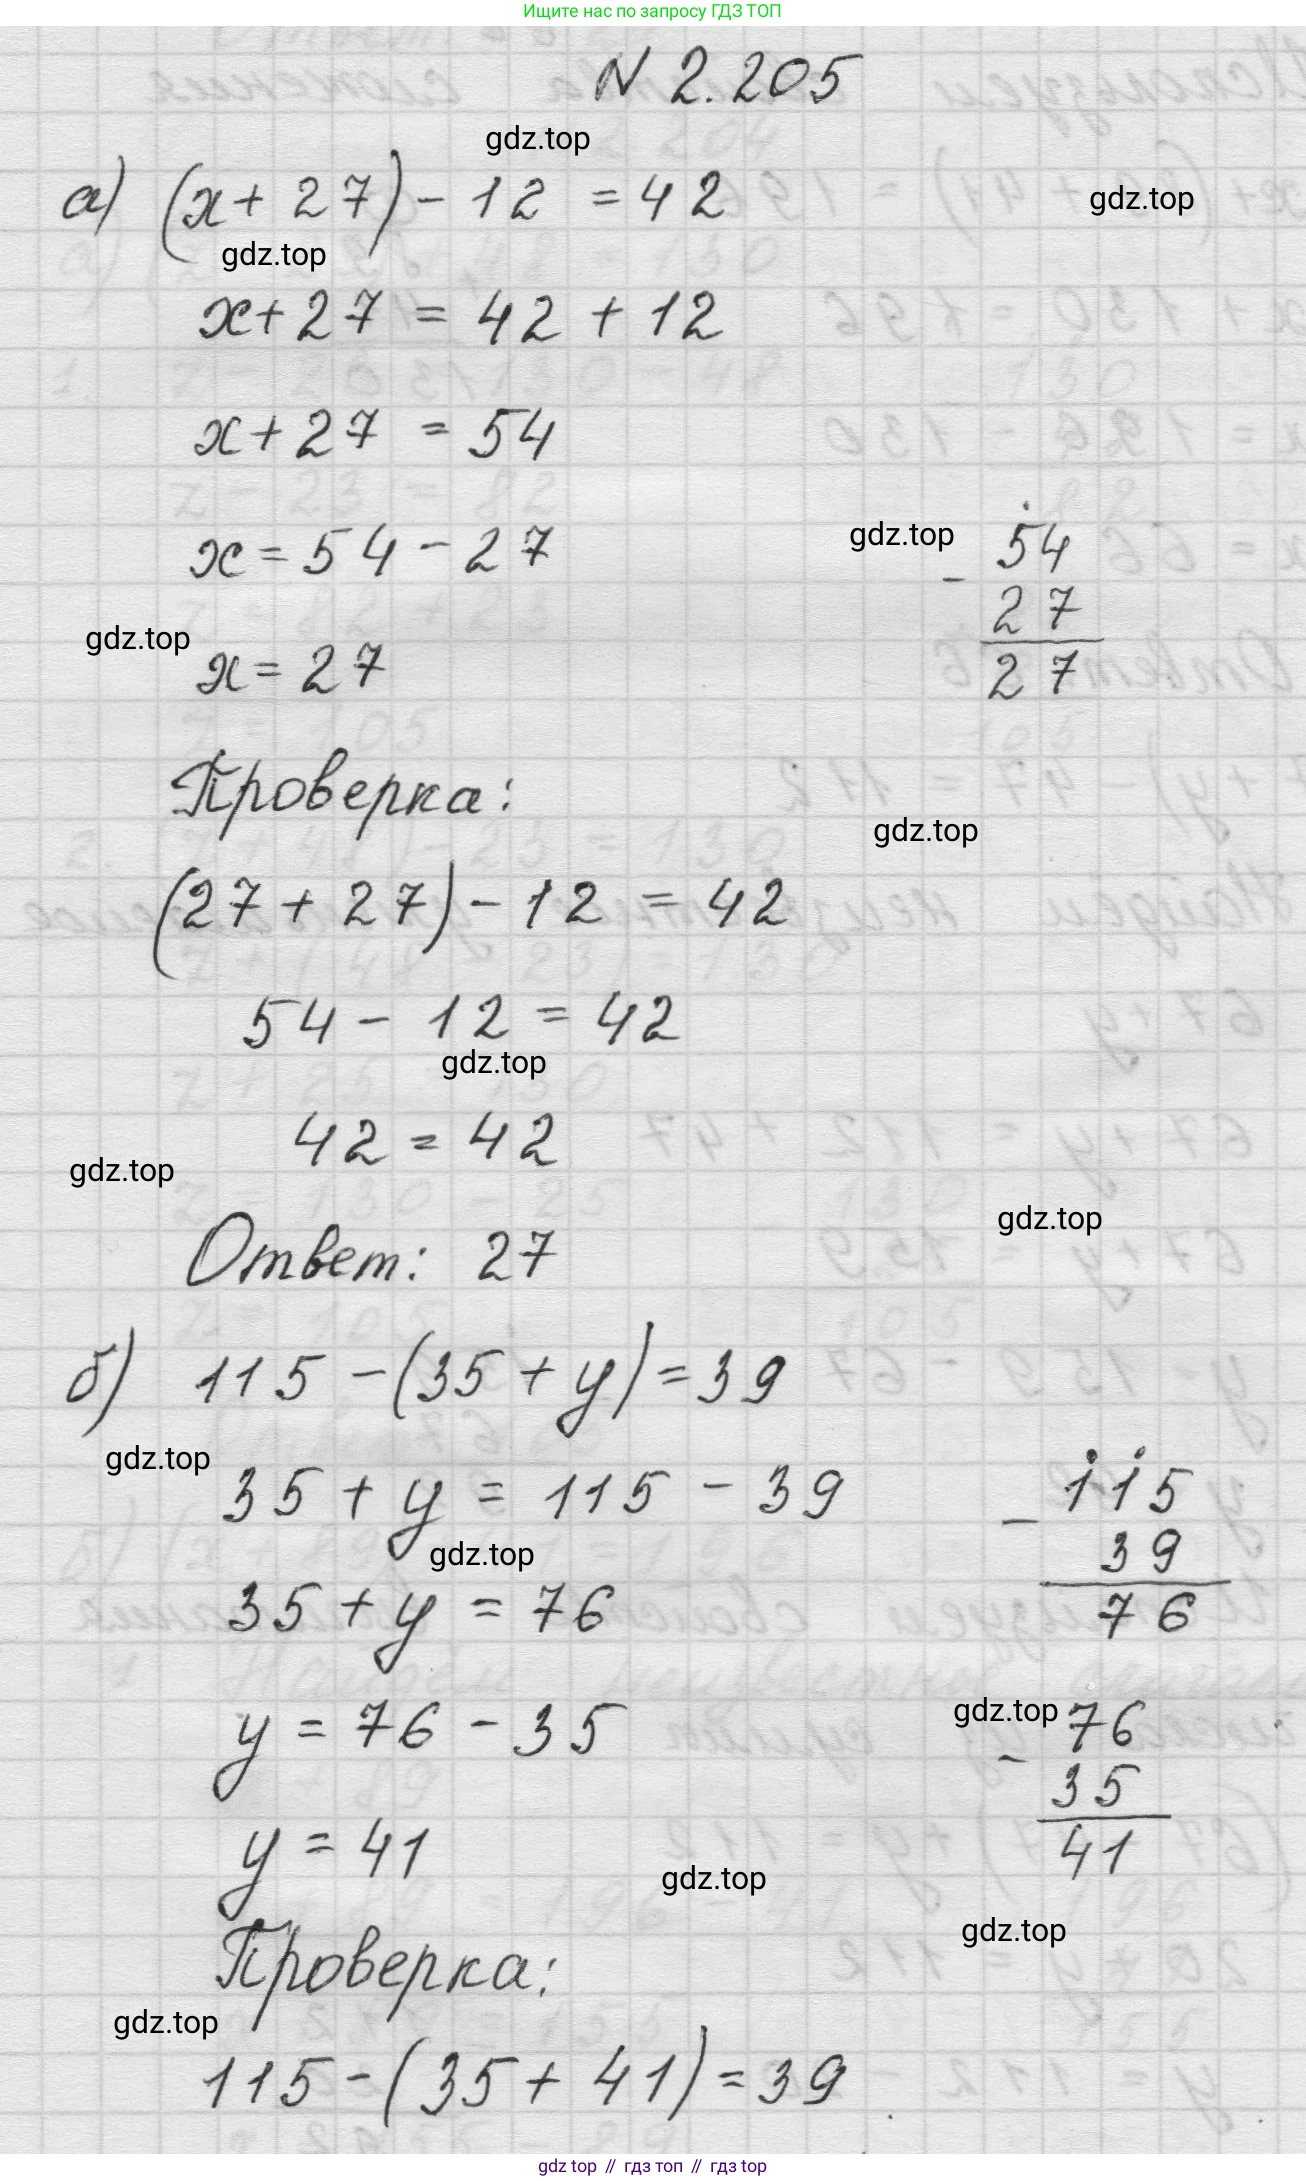 Ищите нас по запросу ГДЗ ТОП
N 2.205
gdz.top
а) (x + 27) - 12 = 42
gdz.top
gdz.top
x + 27 = 42 + 12
x + 27 = 54
x = 54 - 27
gdz.top
54
- 27
27
gdz.top
x = 27
Проверка:
gdz.top
(27 + 27) - 12 = 42
54 - 12 = 42
gdz.top
42 = 42
gdz.top
gdz.top
Ответ: 27
б) 115 - (35 + y) = 39
gdz.top
35 + y = 115 - 39
115
- 39
76
gdz.top
35 + y = 76
y = 76 - 35
gdz.top
76
- 35
41
y = 41
gdz.top
gdz.top
Проверка:
gdz.top
115 - (35 + 41) = 39
gdz top // гдз топ // гдз top